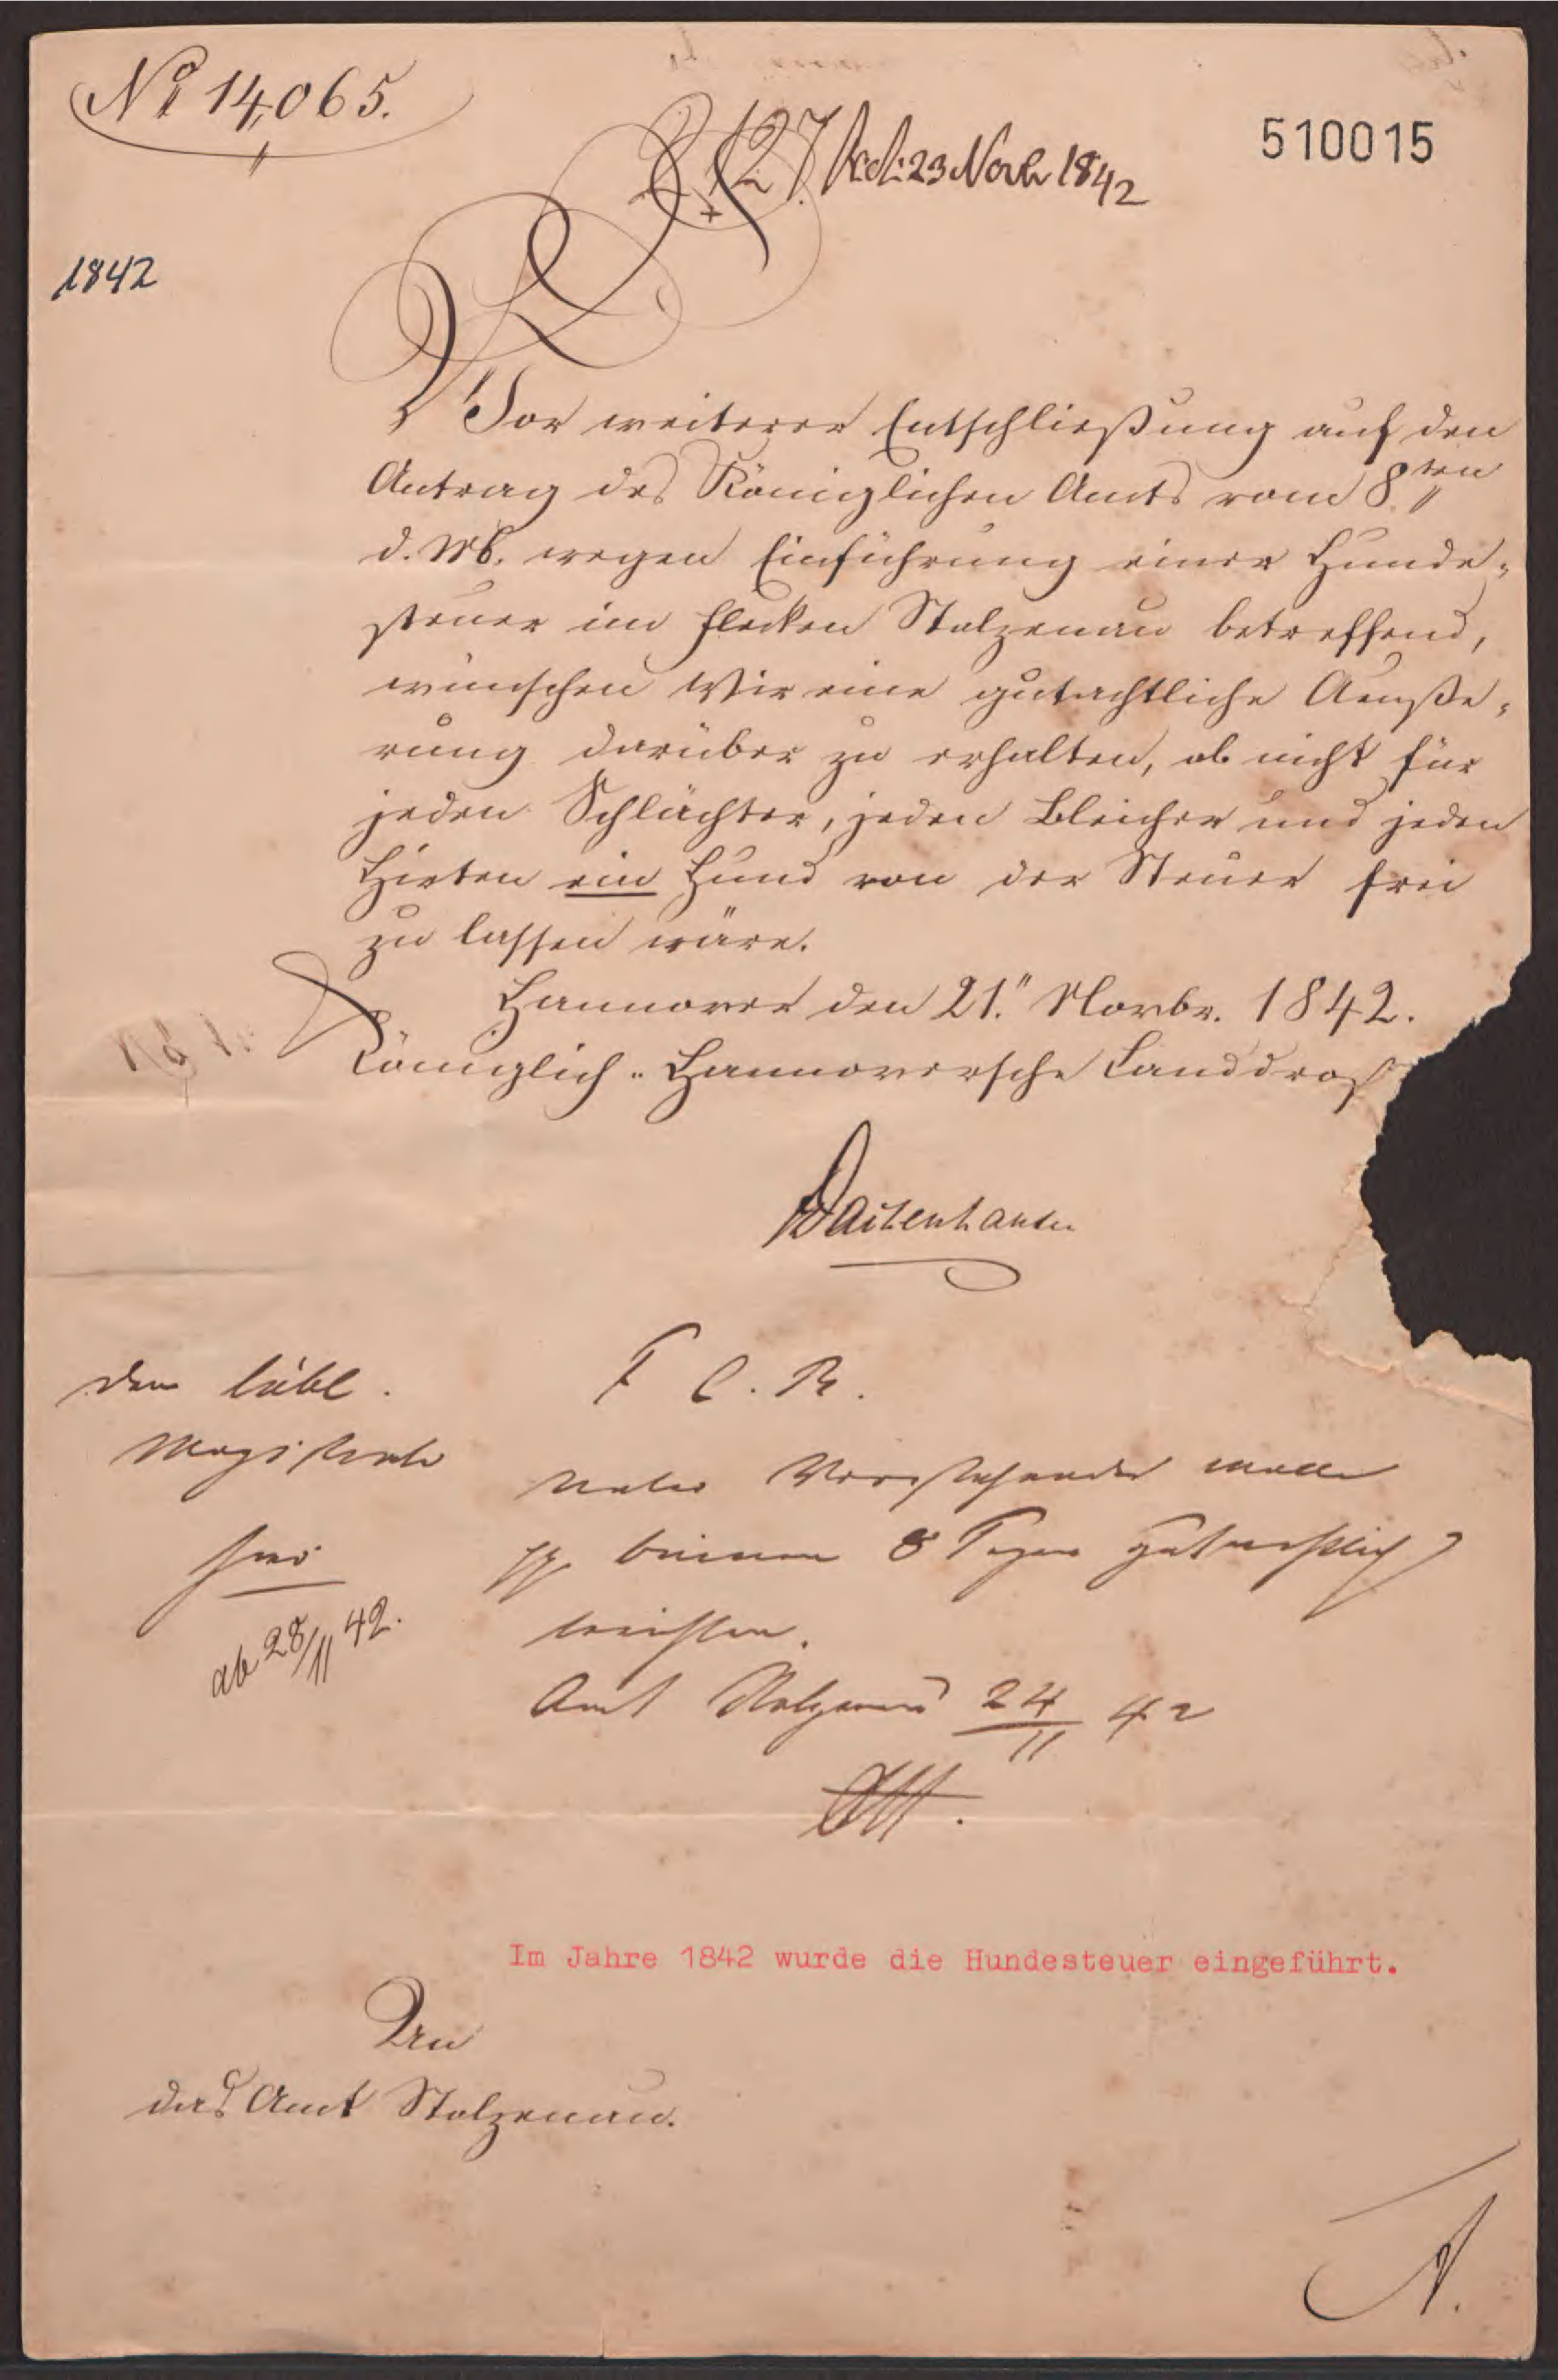 No 14,065.
127. Rcd. 23 Novbr 1842
510015
1842
Vor weiterer Entschließung auf den
Antrag des Königlichen Amts vom 8ten
d. Mts. wegen Einführung einer Hunde-
steuer im Flecken Stolzenau betreffend,
wünschen Wir eine gutachtliche Aeuße-
rung darüber zu erhalten, ob nicht für
jeden Schlächter, jeden Bleicher und jeden
Hirten ein Hund von der Steuer frei
zu lassen wäre.
Hannover den 21. Novbr. 1842.
Königlich-Hannoversche Landdros
Dachenhausen
Dem löbl.
Magistrate
hier
ab 28/11 42.
C. R.
Vorstehendes wolle
pp binnen 8 Tagen gutachtlich
berichten.
Amt Stolzenau 24/11 42
Im Jahre 1842 wurde die Hundesteuer eingeführt.
An
das Amt Stolzenau.